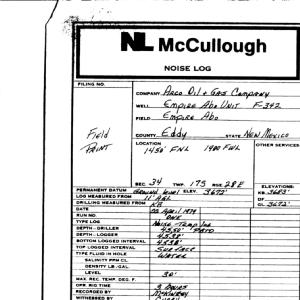 NL McCullough
NOISE LOG
FILING NO.
COMPANY Arco Oil & Gas Company
WELL Empire Abo Unit F-342
FIELD Empire Abo
Field Print
COUNTY Eddy STATE New Mexico
LOCATION
OTHER SERVICES
SEC. 34 TWP. 17S RGE. 28E
PERMANENT DATUM Ground Level ELEV. 3672'
ELEVATIONS:
LOG MEASURED FROM 11' AGL
KB 3683'
DRILLING MEASURED FROM KB
DF
GL 3672'
DATE April 1979
RUN NO. One
TYPE LOG Noise Temp
DEPTH - DRILLER
DEPTH - LOGGER
BOTTOM LOGGED INTERVAL
TOP LOGGED INTERVAL Surface
TYPE FLUID IN HOLE Water
SALINITY PPM CL.
DENSITY LB./GAL.
LEVEL 30'
MAX. REC. TEMP. DEG. F.
OPR. RIG TIME Hours
RECORDED BY
WITNESSED BY